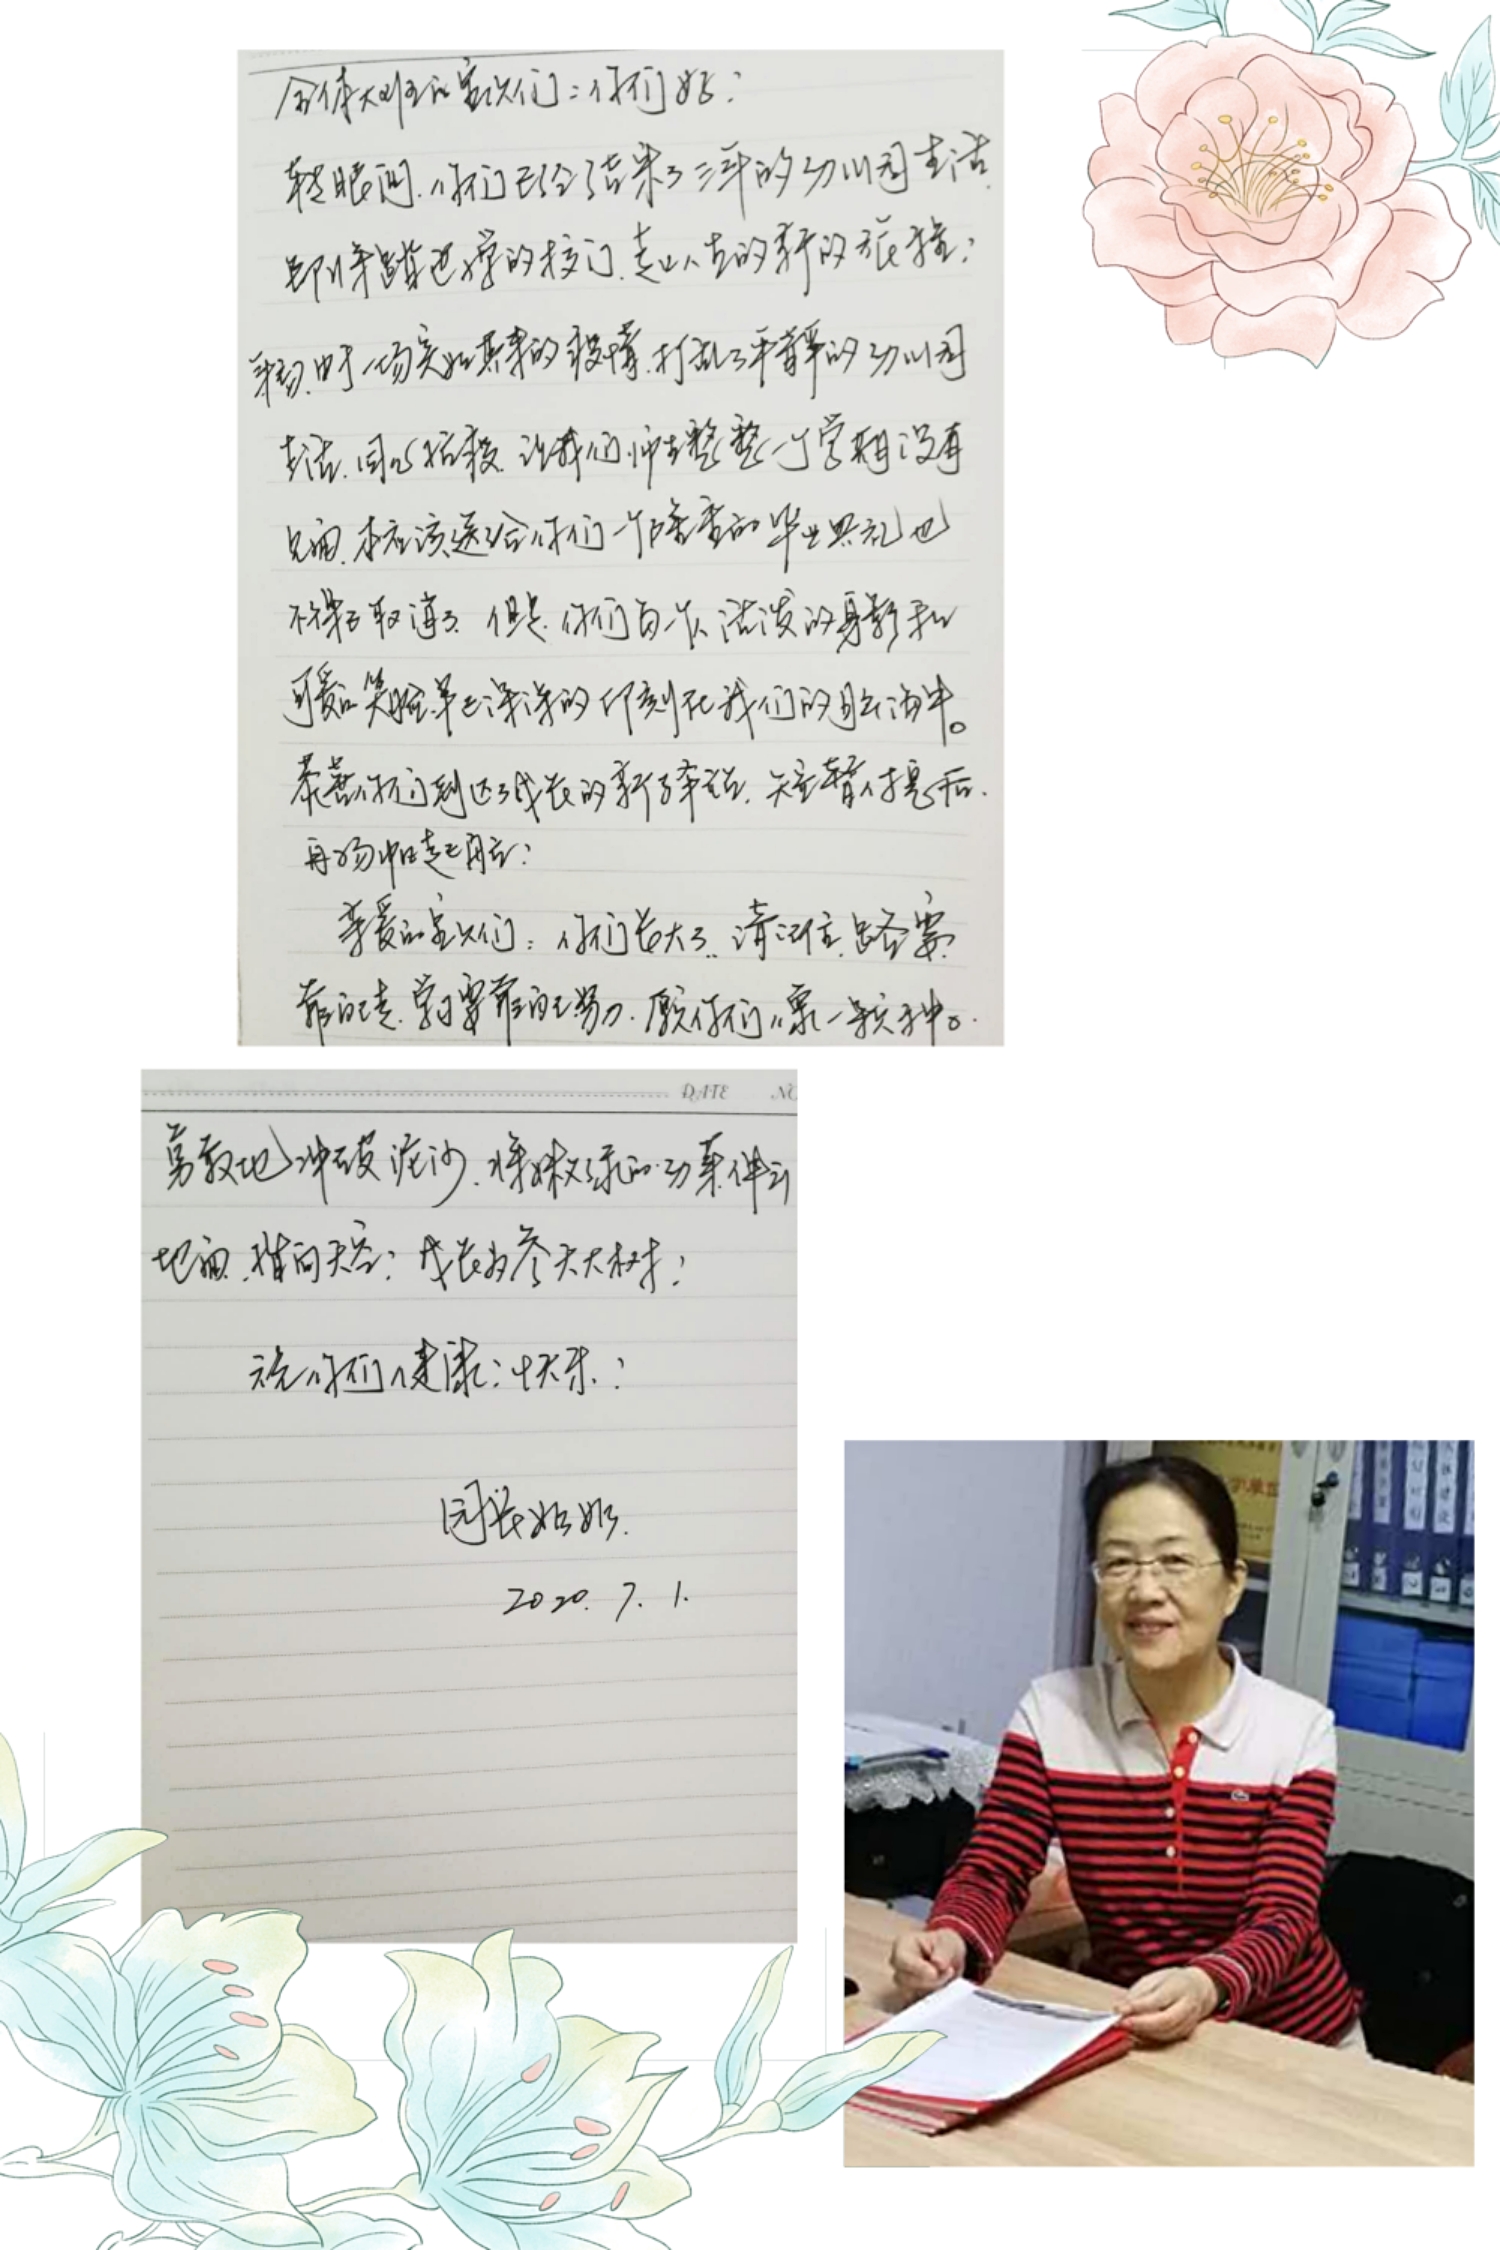 全体大班的宝贝们：你们好！
转眼间，你们已经结束了三年的幼儿园生活，
即将踏进小学的校门，走上人生的新的旅程！
年初，由于一场突如其来的疫情，打乱了平静的幼儿园
生活，同心抗疫，让我们师生整整一个学期没有
见面，本应该送给你们一个隆重的毕业典礼也
不得不取消了，但是，你们每一次活泼的身影和
可爱的笑脸早已深深的印刻在我们的脑海中。
恭喜你们到达了成长的新驿站，短暂休息后，
再扬帆起航！
亲爱的宝贝们：你们长大了，请记住，路要
靠自己走，学习要靠自己努力，愿你们像一颗种子，
DATE
勇敢地冲破泥沙，将嫩绿的幼芽伸出
地面，指向天空！成长为参天大树！
祝你们健康！快乐！
园长妈妈
2020.7.1.